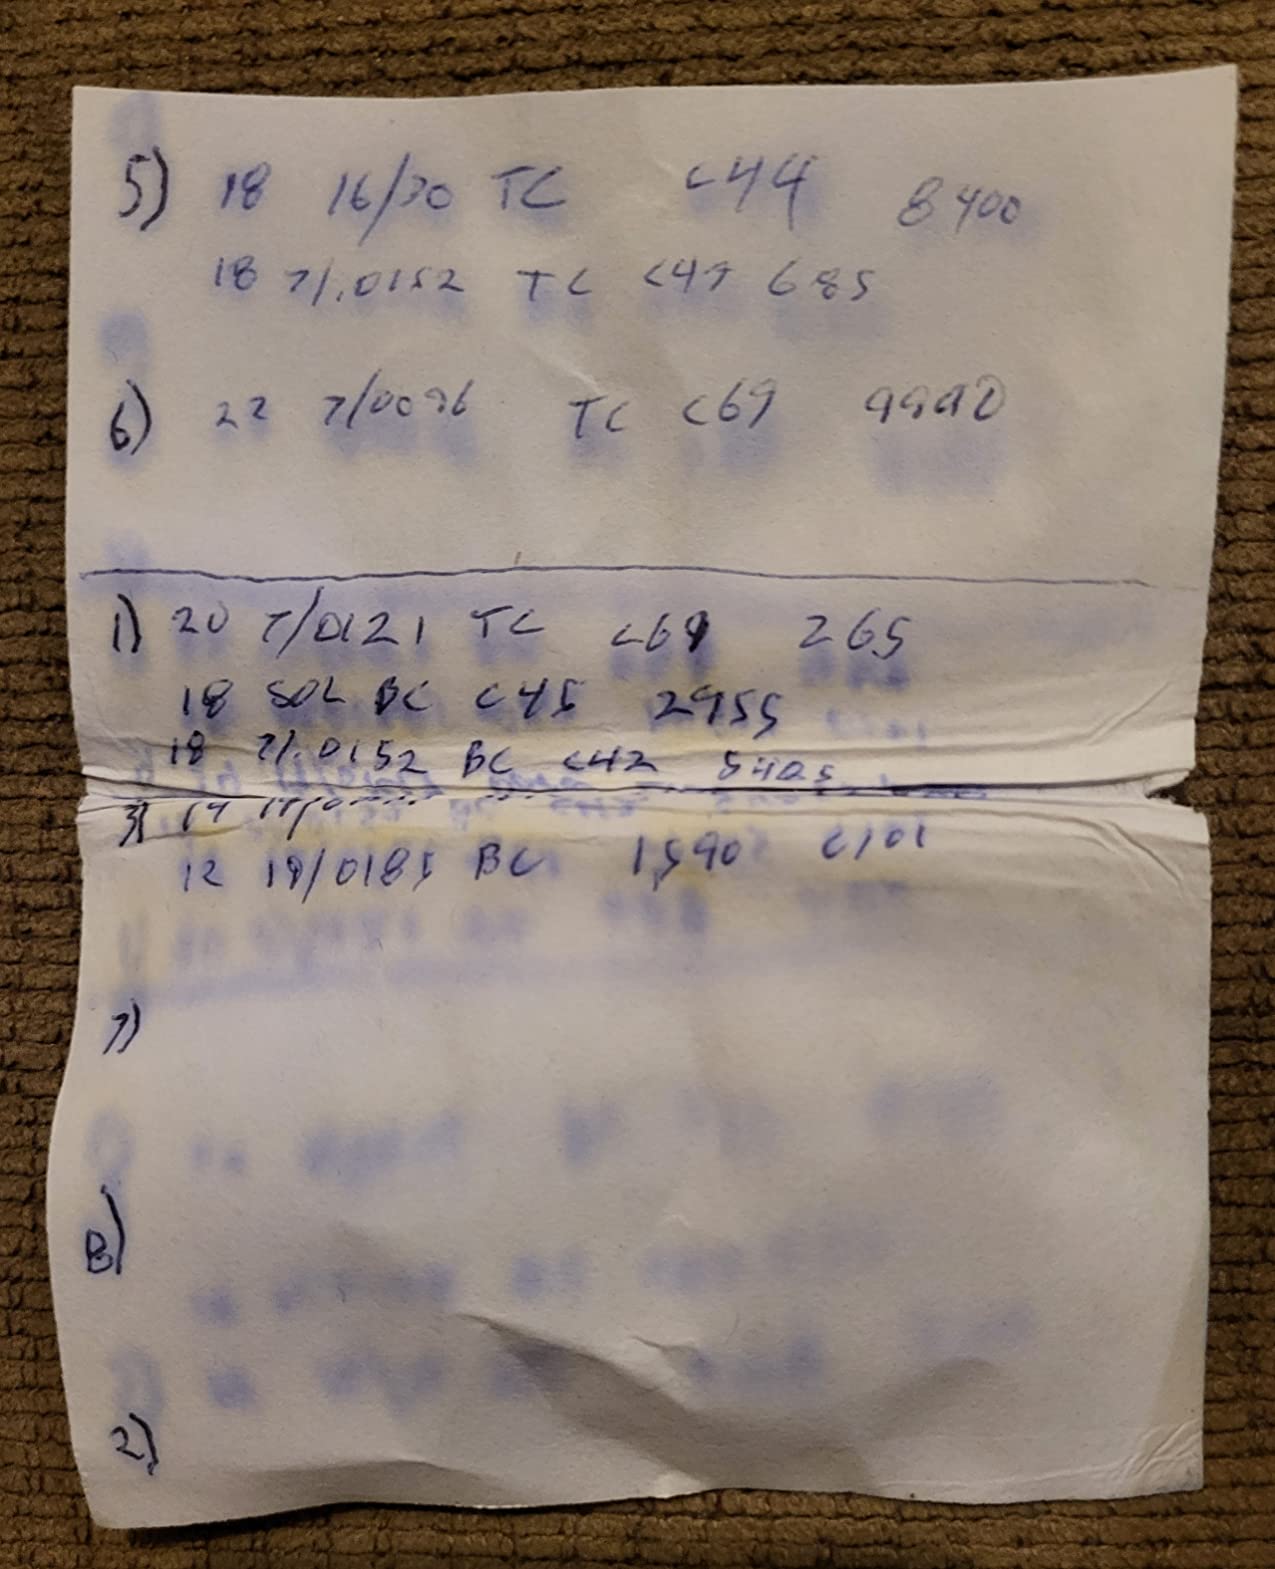 5) 18 16/30 TC C44 8400
18 7/.0152 TC C47 685
6) 22 7/0096 TC C69 9990
1) 20 7/0121 TC C69 265
18 SOL BC C45 2955
18 7/.0152 BC C42 5405
3)
12 19/0185 BC 1,590 C101
7)
8)
2)